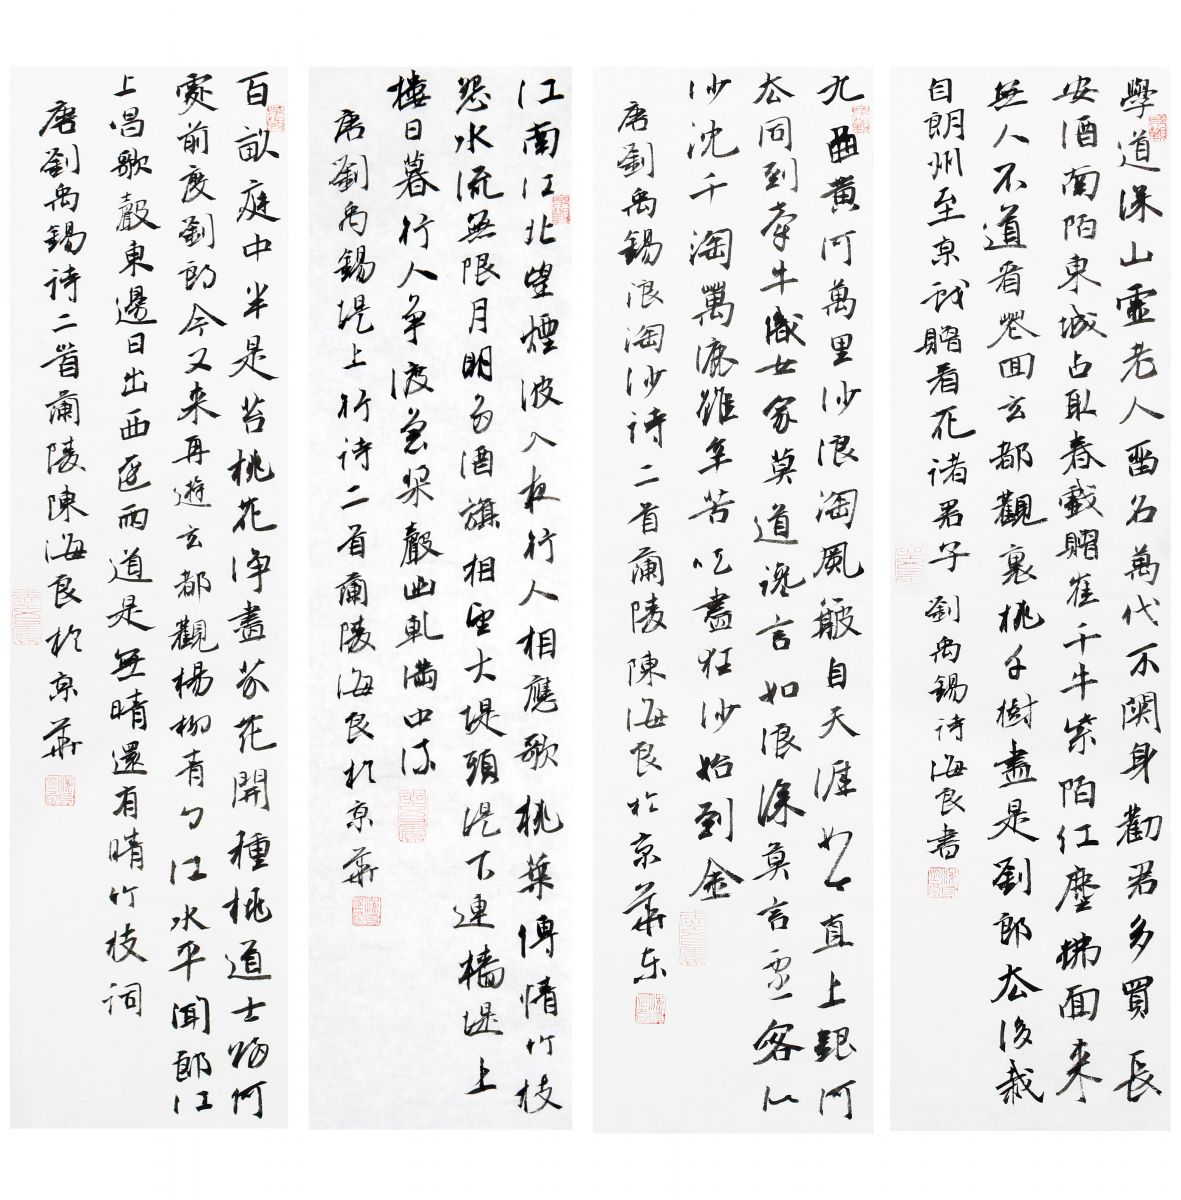 學道深山虛老人留名萬代不關身勸君多買長
安酒南陌東城占取春戲贈崔千牛紫陌紅塵拂面來
無人不道看花回玄都觀裏桃千樹盡是劉郎去後栽
自朗州至京戲贈看花諸君子 劉禹錫詩海良書
九曲黃河萬里沙浪淘風簸自天涯如今直上銀河
去同到牽牛織女家莫道讒言如浪深莫言遷客似
沙沈千淘萬漉雖辛苦吹盡狂沙始到金
唐劉禹錫浪淘沙詩二首蘭陵陳海良於京華東
江南江北望煙波入夜行人相應歌桃葉傳情竹枝
怨水流無限月明多酒旗相望大堤頭堤下連檣堤上
樓日暮行人爭渡急槳聲幽軋滿中流
唐劉禹錫堤上行詩二首蘭陵海良於京華
百畝庭中半是苔桃花淨盡菜花開種桃道士歸何
處前度劉郎今又來再遊玄都觀楊柳青勺江水平聞郎江
上唱歌聲東邊日出西邊雨道是無晴還有晴竹枝詞
唐劉禹錫詩二首蘭陵陳海良於京華